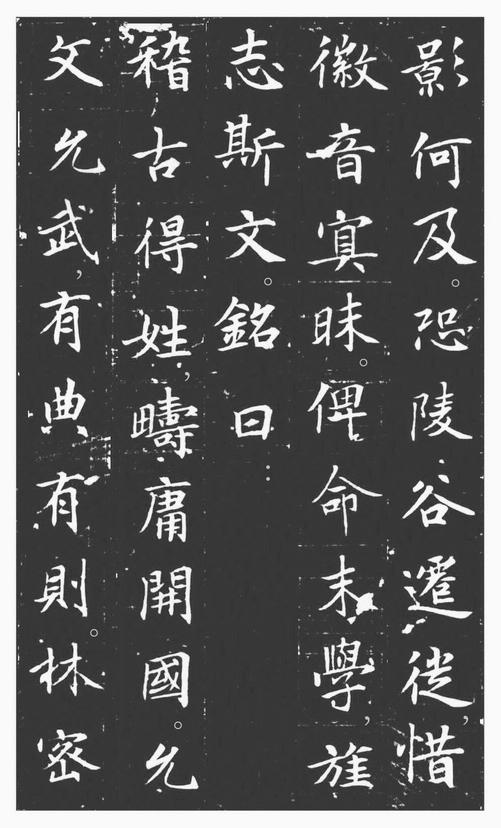 影何及。恐陵谷遷徙,惜
徽音寘昧。俾命末學,旌
志斯文。銘曰:
稽古得姓,疇庸開國。允
文允武,有典有則。林密